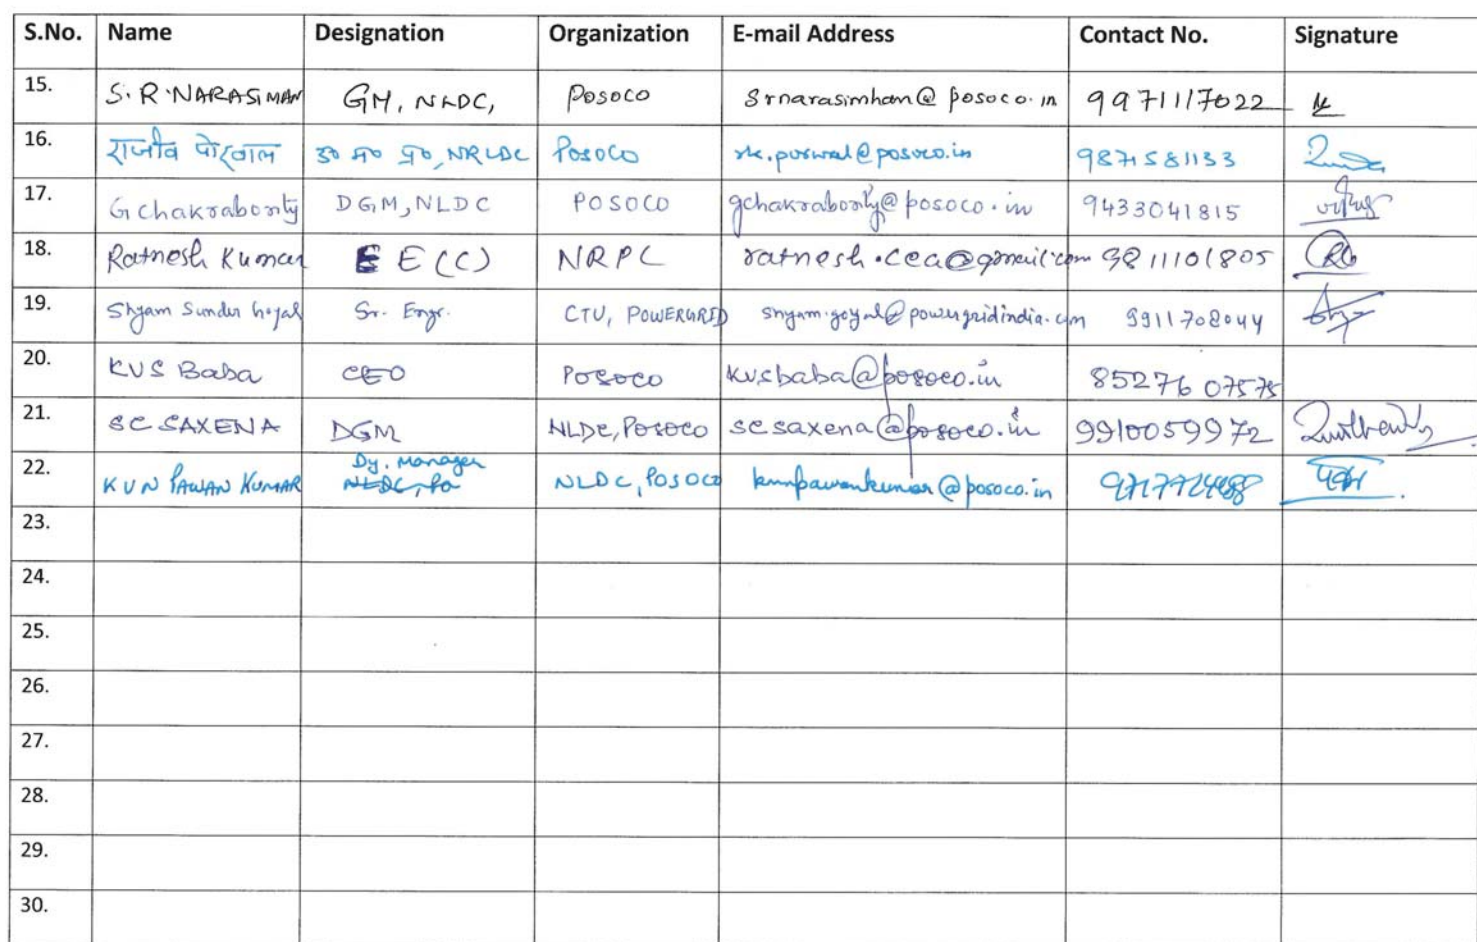 S.No. Name Designation Organization E-mail Address Contact No. Signature
15. S. R. NARASIMAN GM, NLDC, POSOCO srnarasimhan@posoco.in 9971117022
16. राजीव पोरवाल उ० म० प्र०, NRLDC POSOCO rk.porwal@posoco.in 9871581133
17. G Chakraborty DGM, NLDC POSOCO gchakraborty@posoco.in 9433041815
18. Ratnesh Kumar EE(C) NRPC ratnesh.cea@gmail.com 9811101805
19. Shyam Sunder Goyal Sr. Engr. CTU, POWERGRID shyam.goyal@powergridindia.com 9911708044
20. KVS Baba CEO POSOCO kvsbaba@posoco.in 85276 07575
21. SC SAXENA DGM NLDC, POSOCO scsaxena@posoco.in 9910059972
22. KVN PAWAN KUMAR Dy. Manager NLDC, POSOCO kvnpawankumar@posoco.in
23.
24.
25.
26.
27.
28.
29.
30.